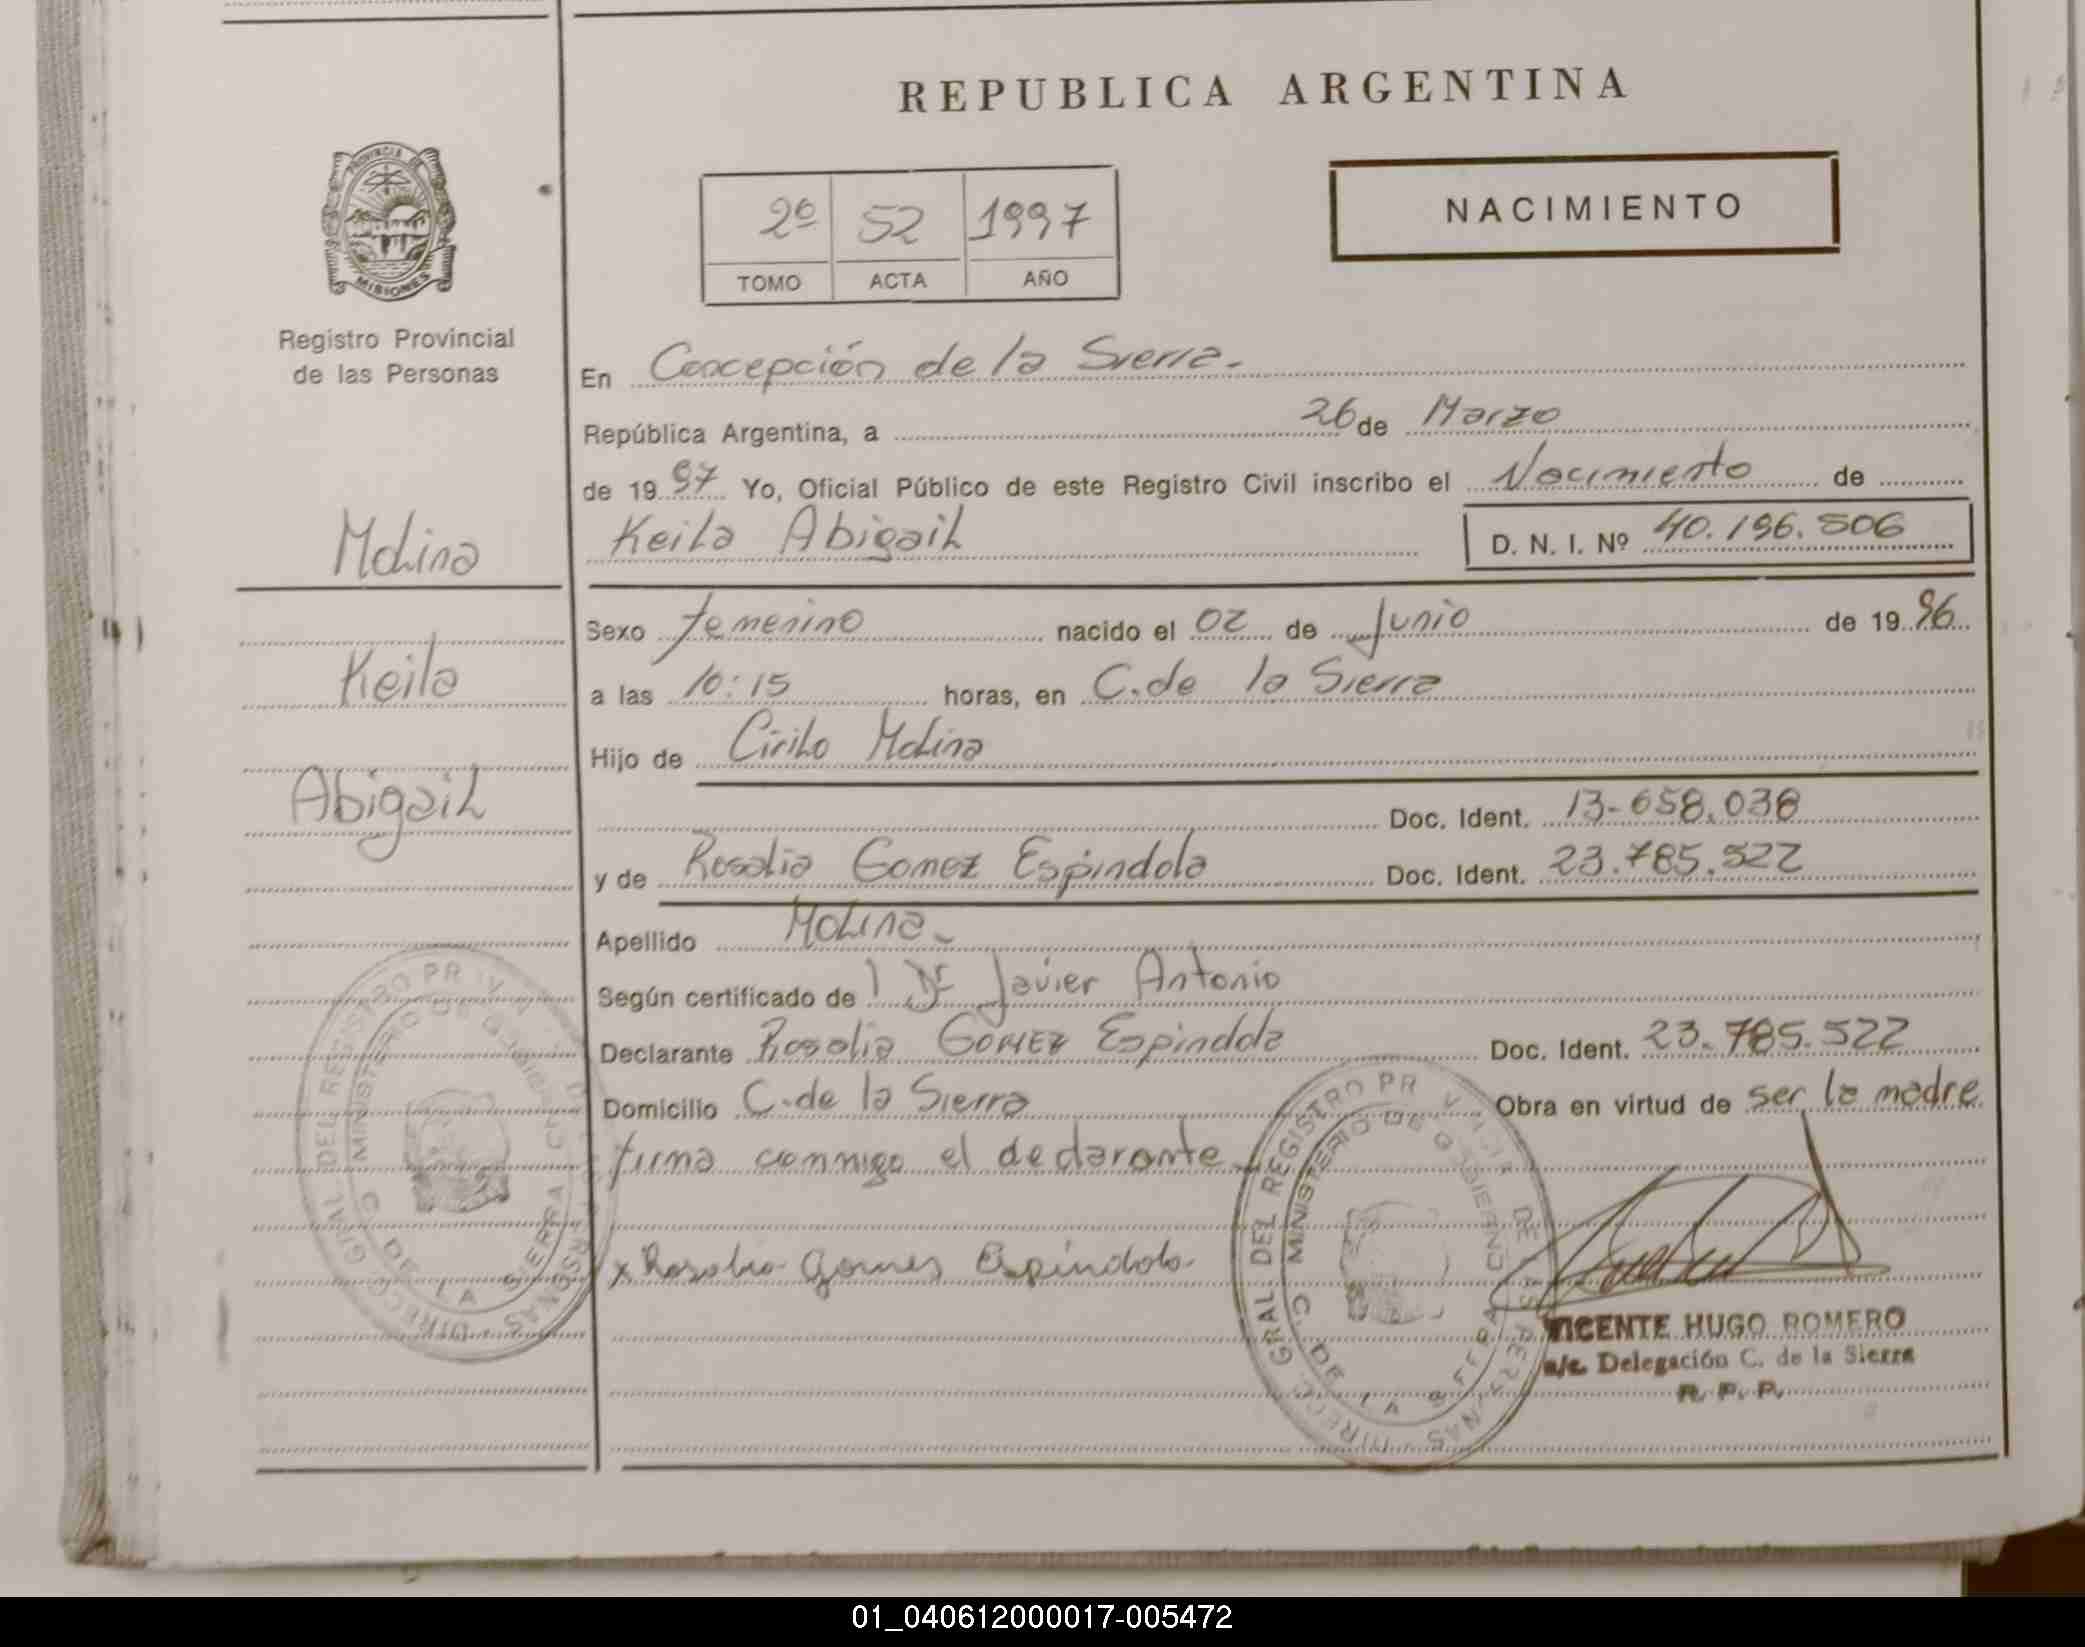 REPUBLICA ARGENTINA
PROVINCIA DE
MISIONES
Registro Provincial
de las Personas
2º 52 1997
TOMO ACTA AÑO
NACIMIENTO
En Concepción de la Sierra.
República Argentina, a 26 de Marzo
de 1997 Yo, Oficial Público de este Registro Civil inscribo el Nacimiento de
Keila Abigail D. N. I. Nº 40.196.506
Molina
Keila
Abigail
Sexo femenino nacido el 02 de Junio de 1996
a las 10:15 horas, en C. de la Sierra
Hijo de Cirilo Molina
Doc. Ident. 13-658.038
y de Rosalia Gomez Espindola Doc. Ident. 23.785.522
Apellido Molina
Según certificado de Dr Javier Antonio
Declarante Rosalia Gomez Espindola Doc. Ident. 23.785.522
Domicilio C. de la Sierra Obra en virtud de ser la madre
firma conmigo el declarante
x Rosalia Gomes Espíndola
DIRECC. GRAL. DEL REGISTRO PROV. DE LAS PERSONAS
MINISTERIO DE GOBIERNO
C. DE LA SIERRA
DIRECC. GRAL. DEL REGISTRO PROV. DE LAS PERSONAS
MINISTERIO DE GOBIERNO
C. DE LA SIERRA
VICENTE HUGO ROMERO
a/c. Delegación C. de la Sierra
R. P. P.
01_040612000017-005472